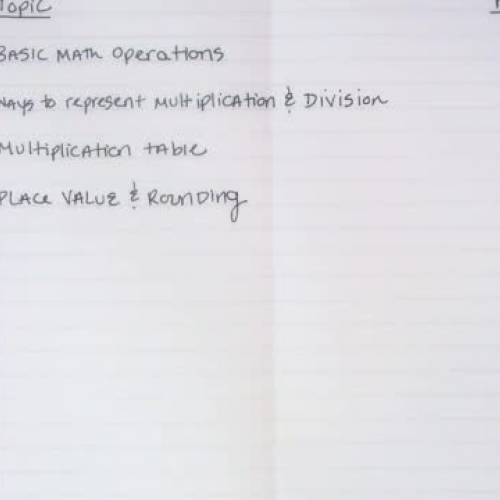 Topic
BASIC MATH Operations
WAYS to represent MULtiplicAtion & Division
MULtiplicAtion tABLe
PLACe VALUE & RounDing